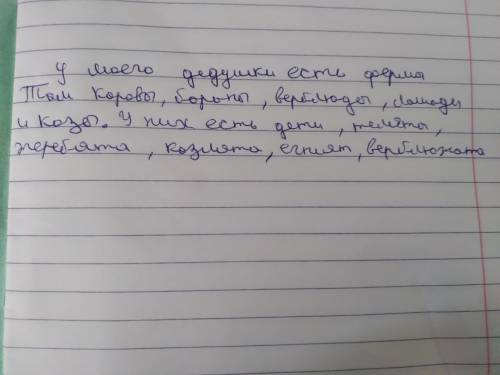 У моего дедушки есть ферма
Там коровы, бораны, верблюды, лошады
и козы. У них есть дети, теляты,
жеребята, козлята, егният, верблюжата